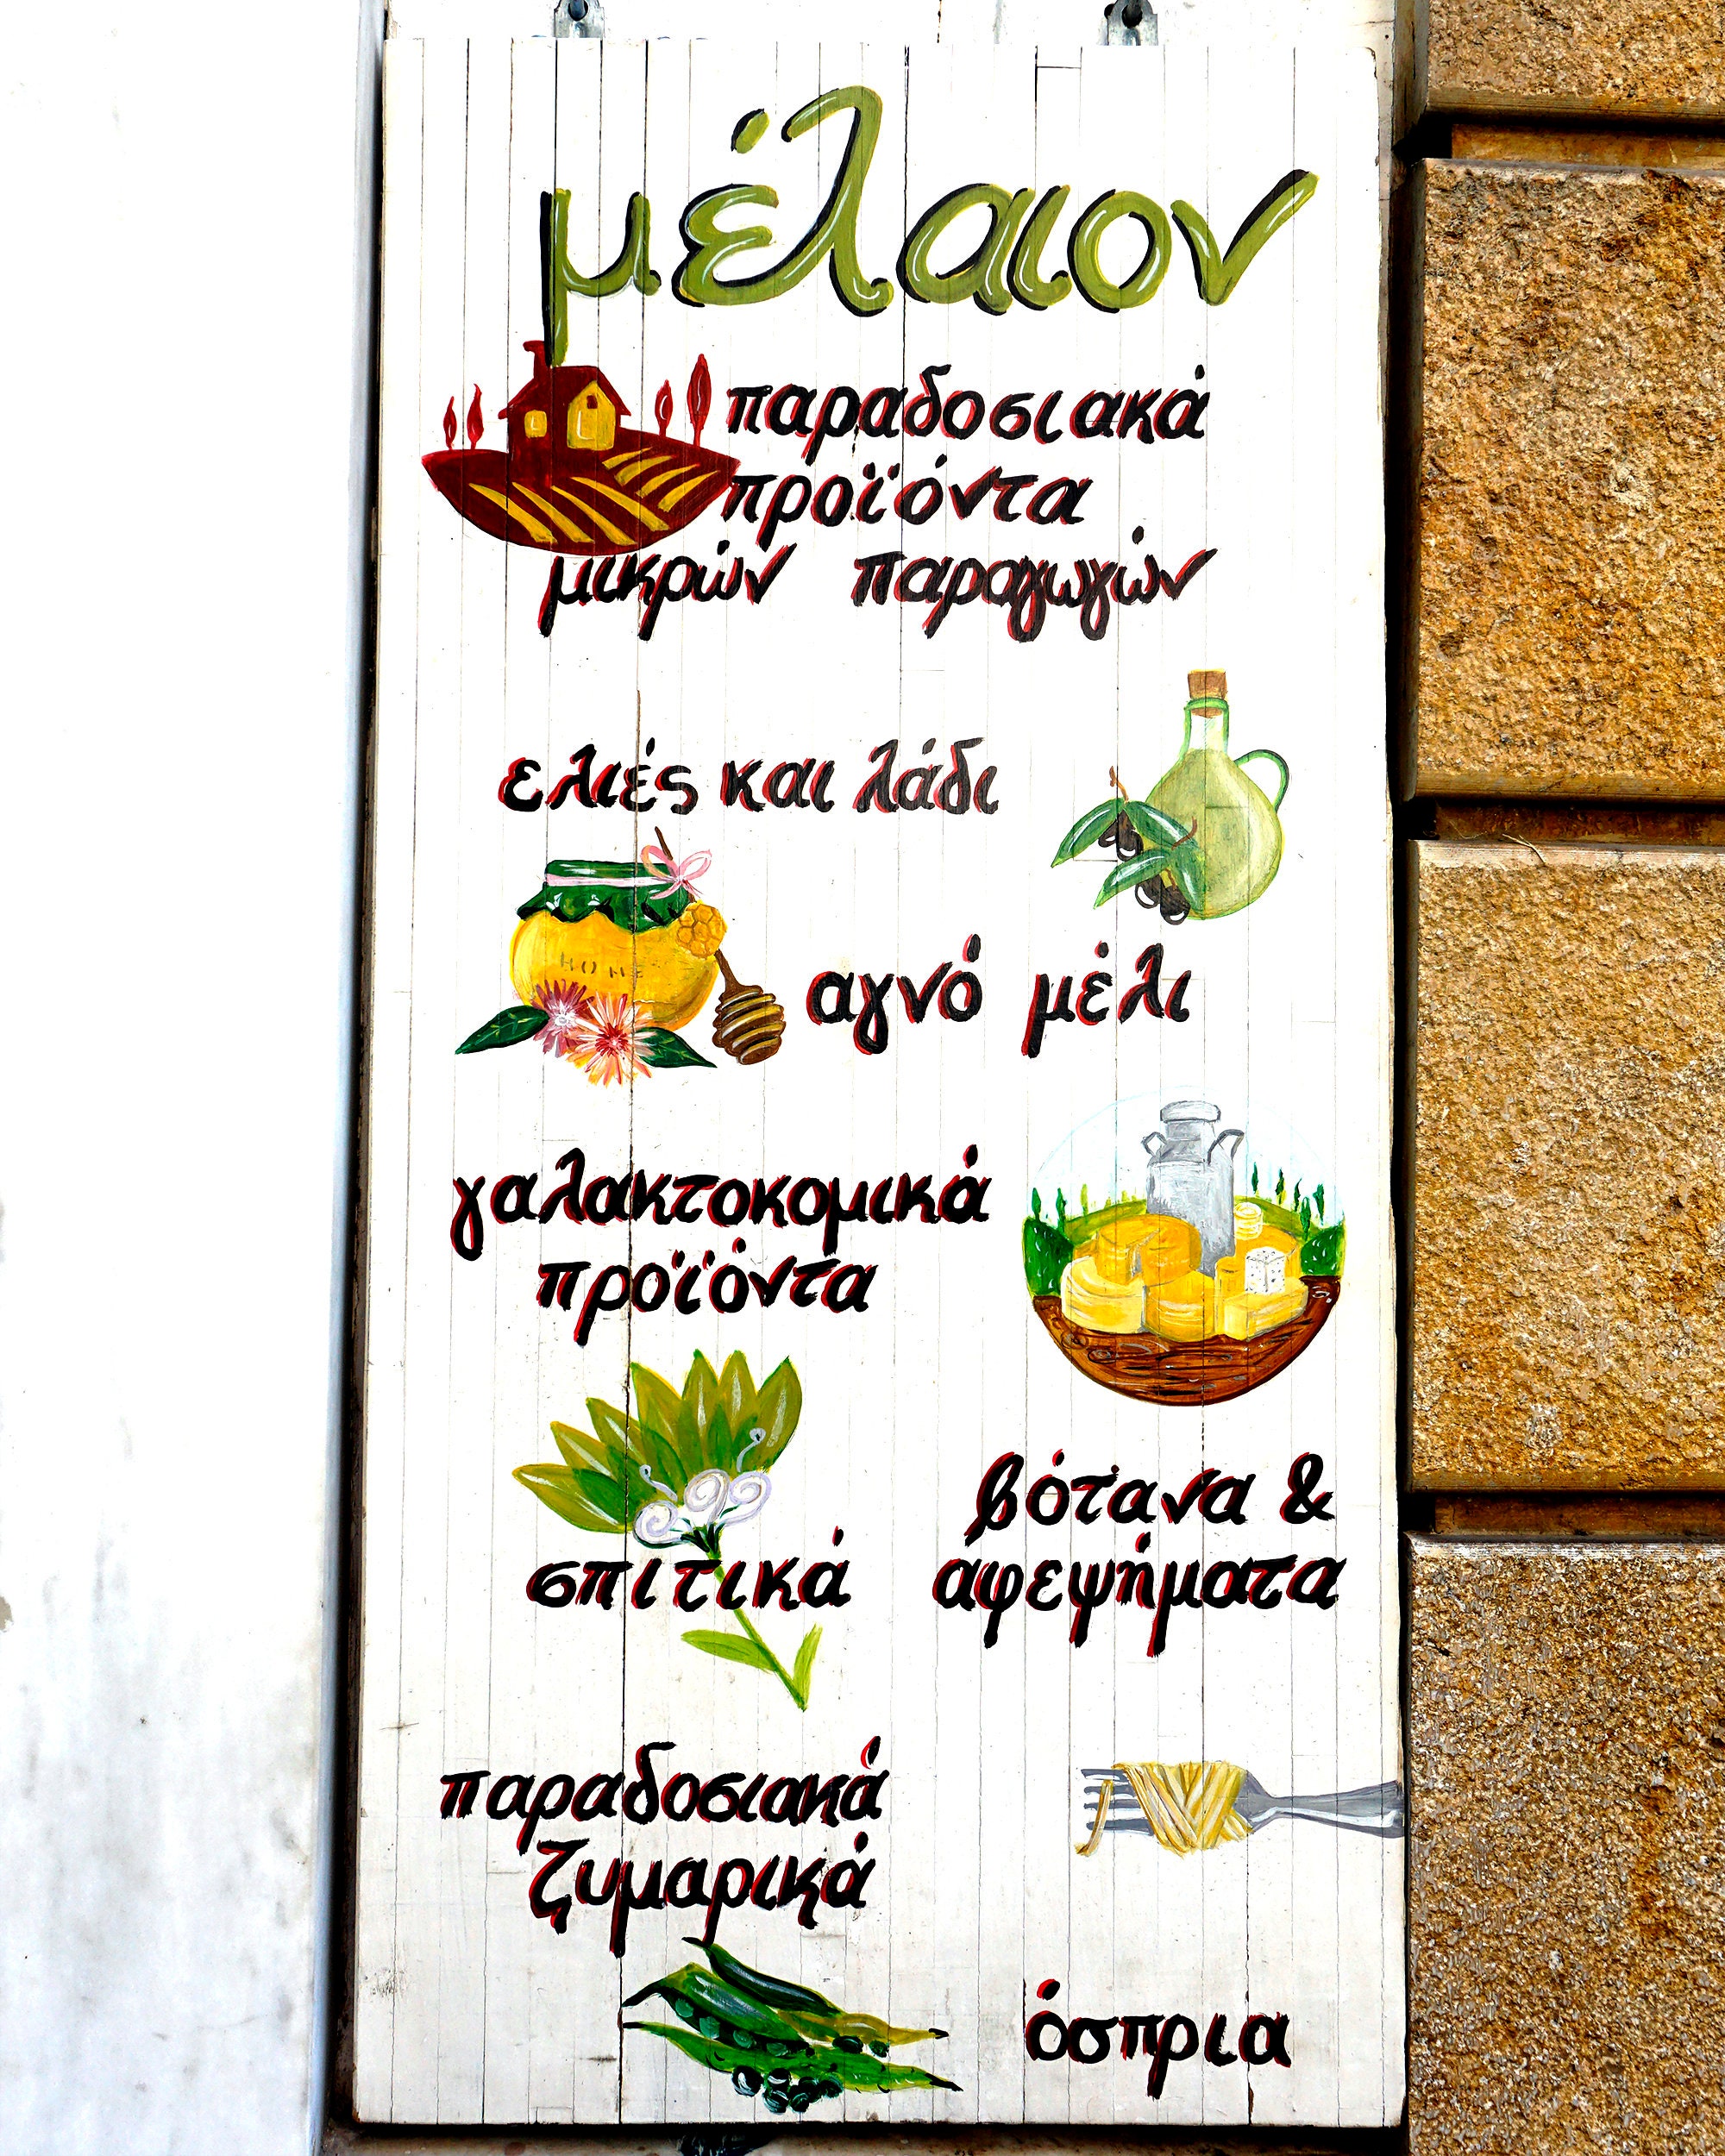 μέλαιον
παραδοσιακά
προϊόντα
μικρών παραγωγών
ελιές και λάδι
HONE
αγνό μέλι
γαλακτοκομικά
προϊόντα
βότανα &
σπιτικά αφεψήματα
παραδοσιακά
ζυμαρικά
όσπρια